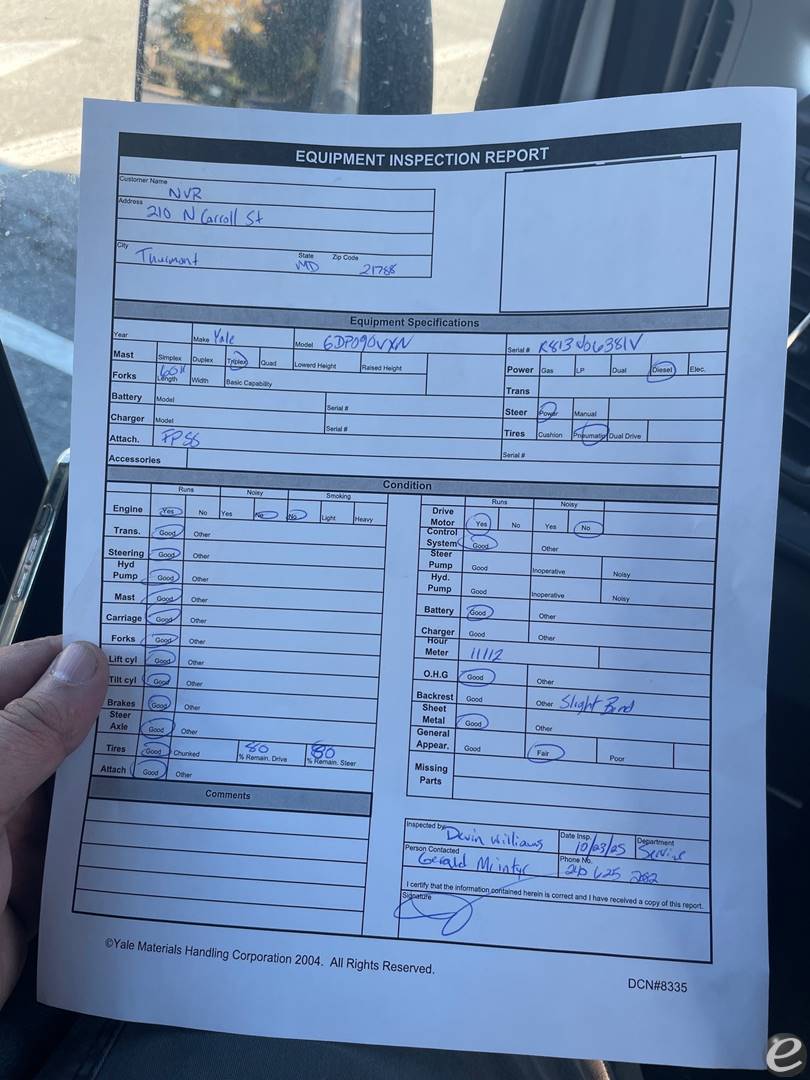 EQUIPMENT INSPECTION REPORT
Customer Name NVR
Address 210 N Carroll St
City Thurmont State MD Zip Code 21788
Equipment Specifications
Year Make Yale Model GDP090VXN Serial # R813V06381V
Mast Simplex Duplex Triplex Quad Lowerd Height Raised Height Power Gas LP Dual Diesel Elec.
Forks 60" Length Width Basic Capability Trans
Battery Model Serial # Steer Power Manual
Charger Model Serial # Tires Cushion Pneumatic Dual Drive
Attach. FPSS Serial #
Accessories
Condition
Runs Noisy Smoking
Engine Yes No Yes No No Light Heavy
Trans. Good Other
Steering Good Other
Hyd Pump Good Other
Mast Good Other
Carriage Good Other
Forks Good Other
Lift cyl Good Other
Tilt cyl Good Other
Brakes Good Other
Steer Axle Good Other
Tires Good Chunked 80 % Remain. Drive 80 % Remain. Steer
Attach Good Other
Comments
Runs Noisy
Drive Motor Yes No Yes No
Control System Good Other
Steer Pump Good Inoperative Noisy
Hyd. Pump Good Inoperative Noisy
Battery Good Other
Charger Good Other
Hour Meter 11112
O.H.G Good Other
Backrest Good Other Slight Bend
Sheet Metal Good Other
General Appear. Good Fair Poor
Missing Parts
Inspected by Devin Williams Date Insp. 10/23/25 Department Service
Person Contacted Gerald McIntyr Phone No. 240 625 2882
I certify that the information contained herein is correct and I have received a copy of this report.
Signature
©Yale Materials Handling Corporation 2004. All Rights Reserved.
DCN#8335
e